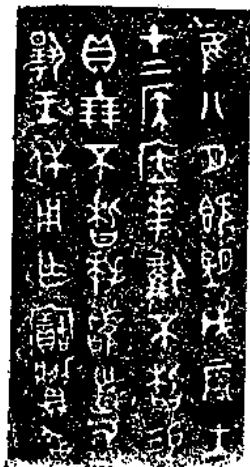 隹八月既望戊辰王
才上侯㡴𠦪祼不栺易
貝十朋不栺拜𩒨首敢
揚王休用乍寶𩰬彝